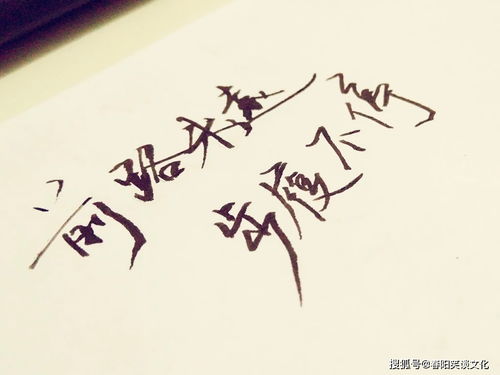 前路未遠
步履不停
搜狐号@春阳笑谈文化